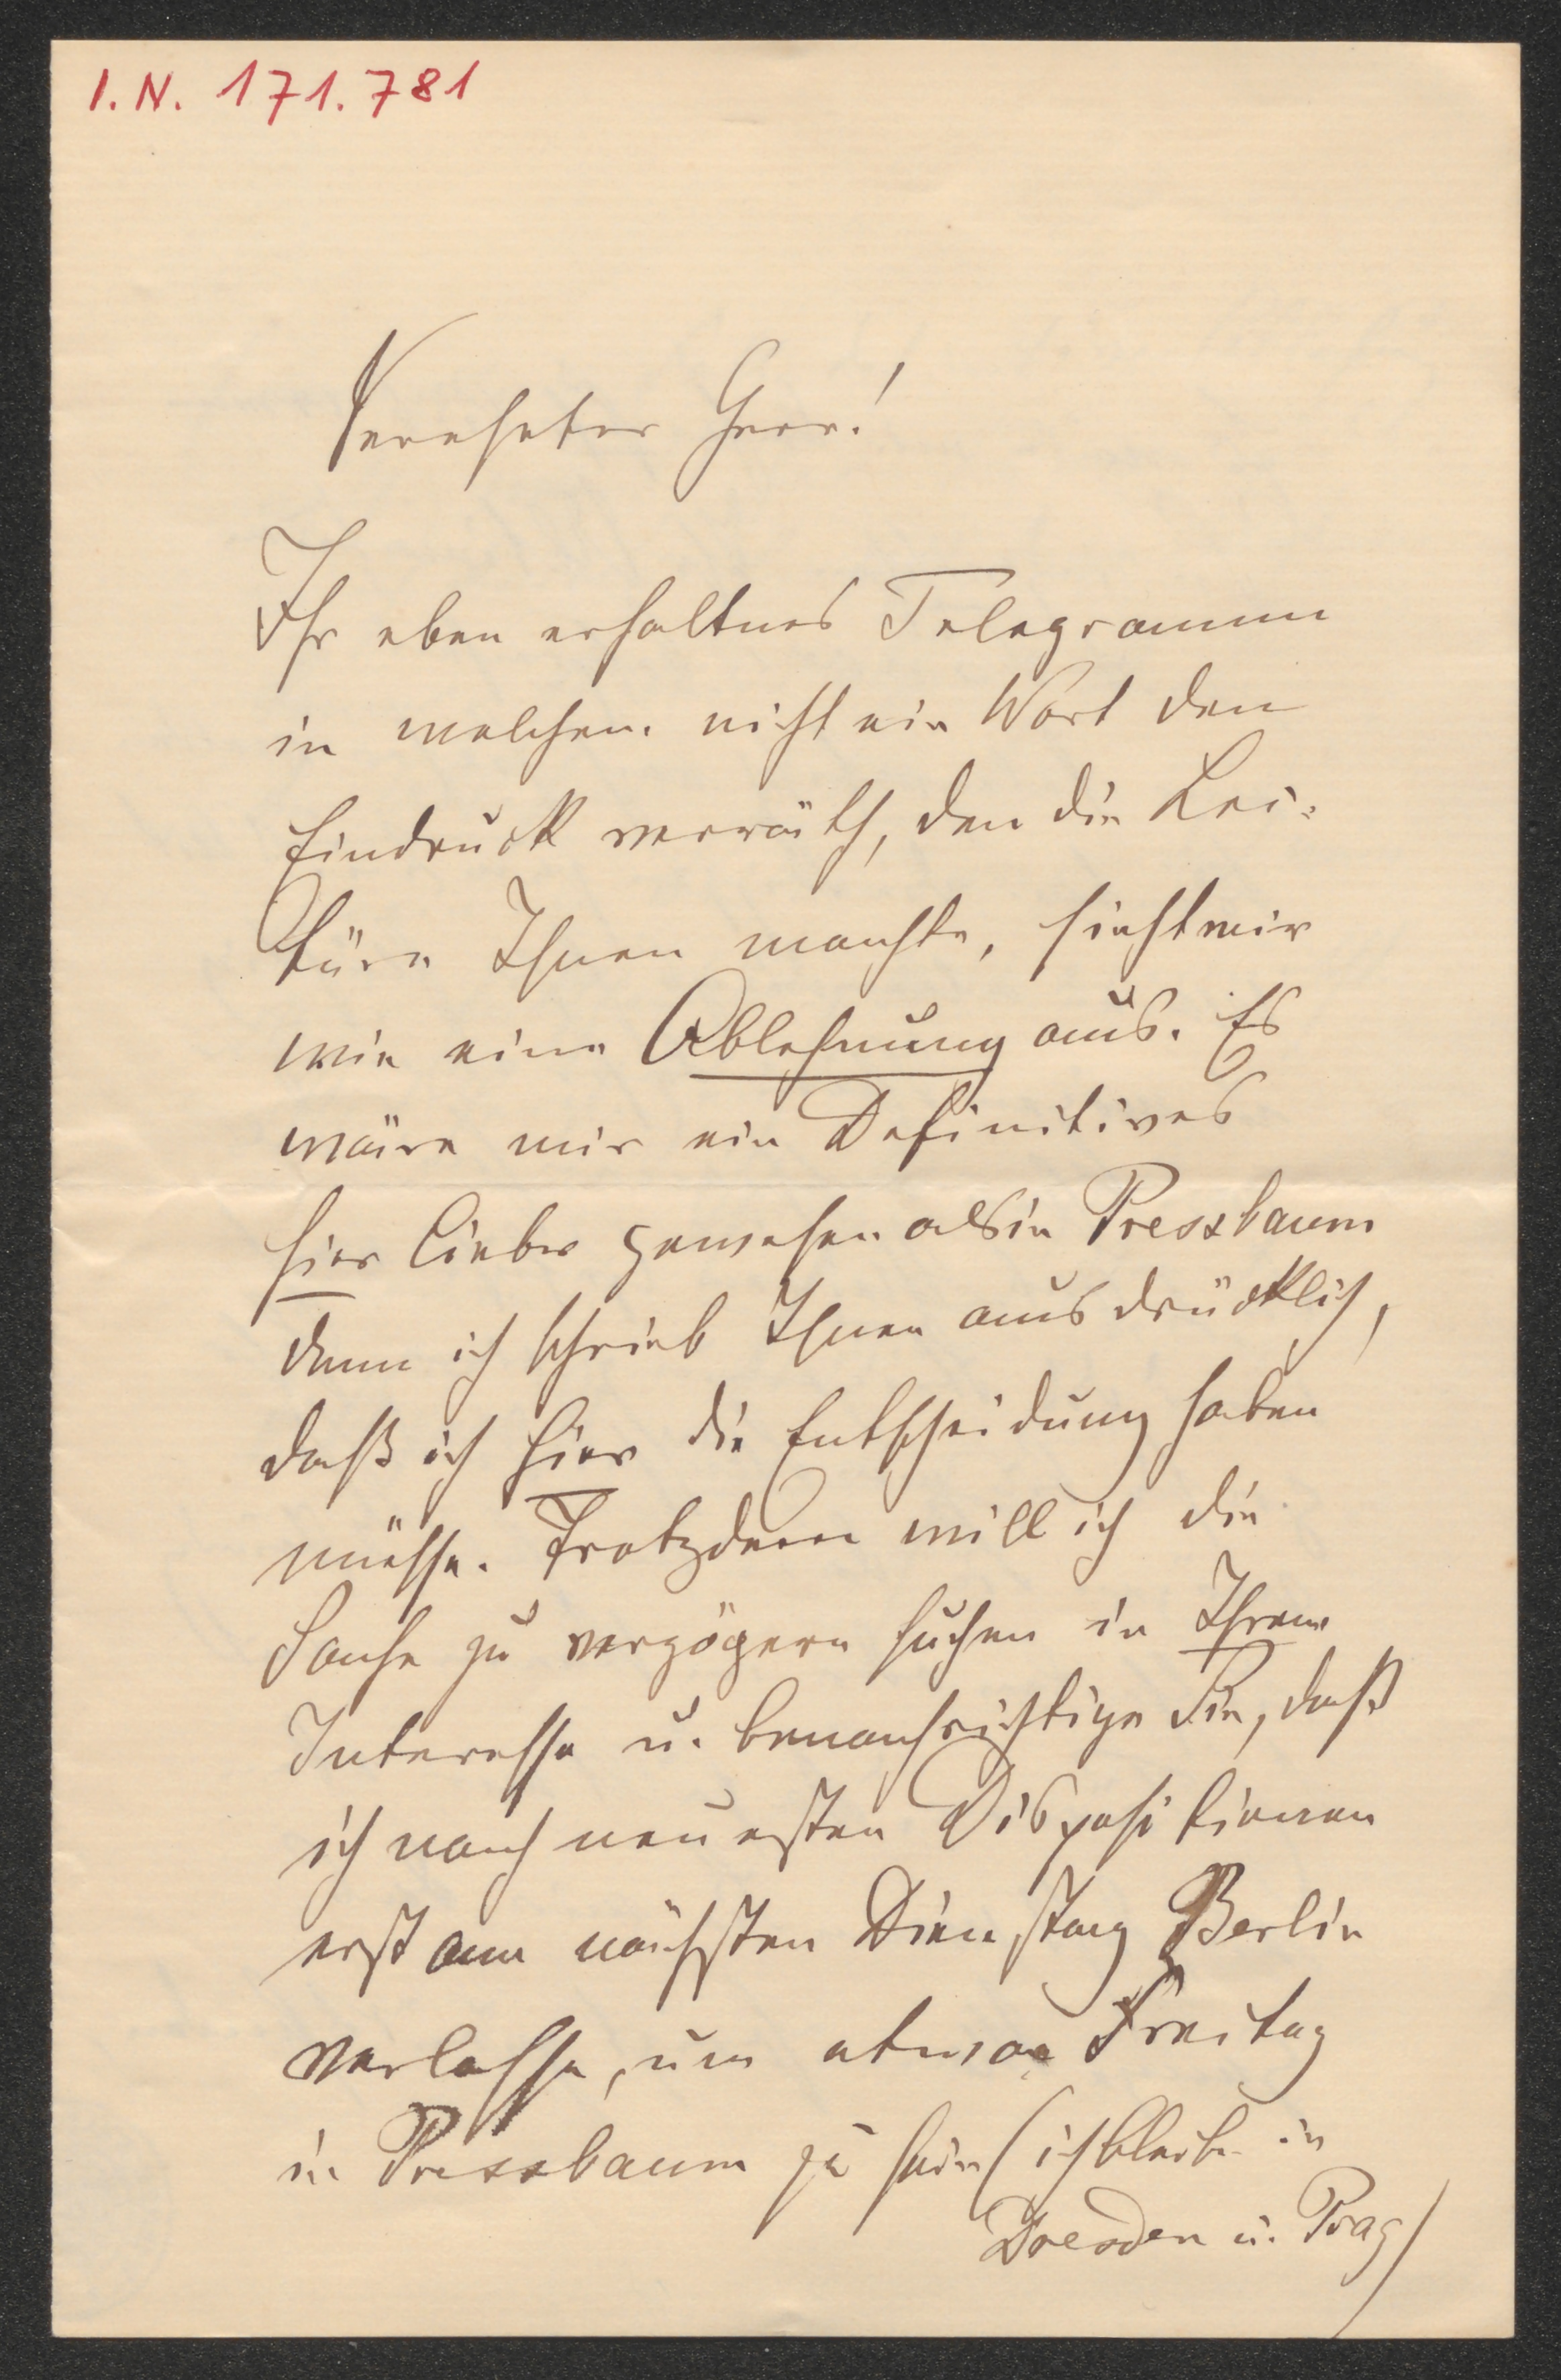 I. N. 171.781
Verehrter Herr!
Ihr eben erhaltnes Telegramm
in welchem nicht ein Wort den
Eindruck verräth, den die Lec-
türe Ihnen machte, sieht mir
wie eine Ablehnung aus. Es
wäre mir ein Definitives
hier lieber gewesen als in Pressbaum
denn ich schrieb Ihnen ausdrücklich,
daß ich hier die Entscheidung haben
müsse. Trotzdem will ich die
Sache zu verzögern suchen in Ihrem
Interesse u. benachrichtige Sie, daß
ich nach neuesten Dispositionen
erst am nächsten Dienstag Berlin
verlasse, um etwa Freitag
in Pressbaum zu sein (ich bleibe in
Dresden u. Prag)